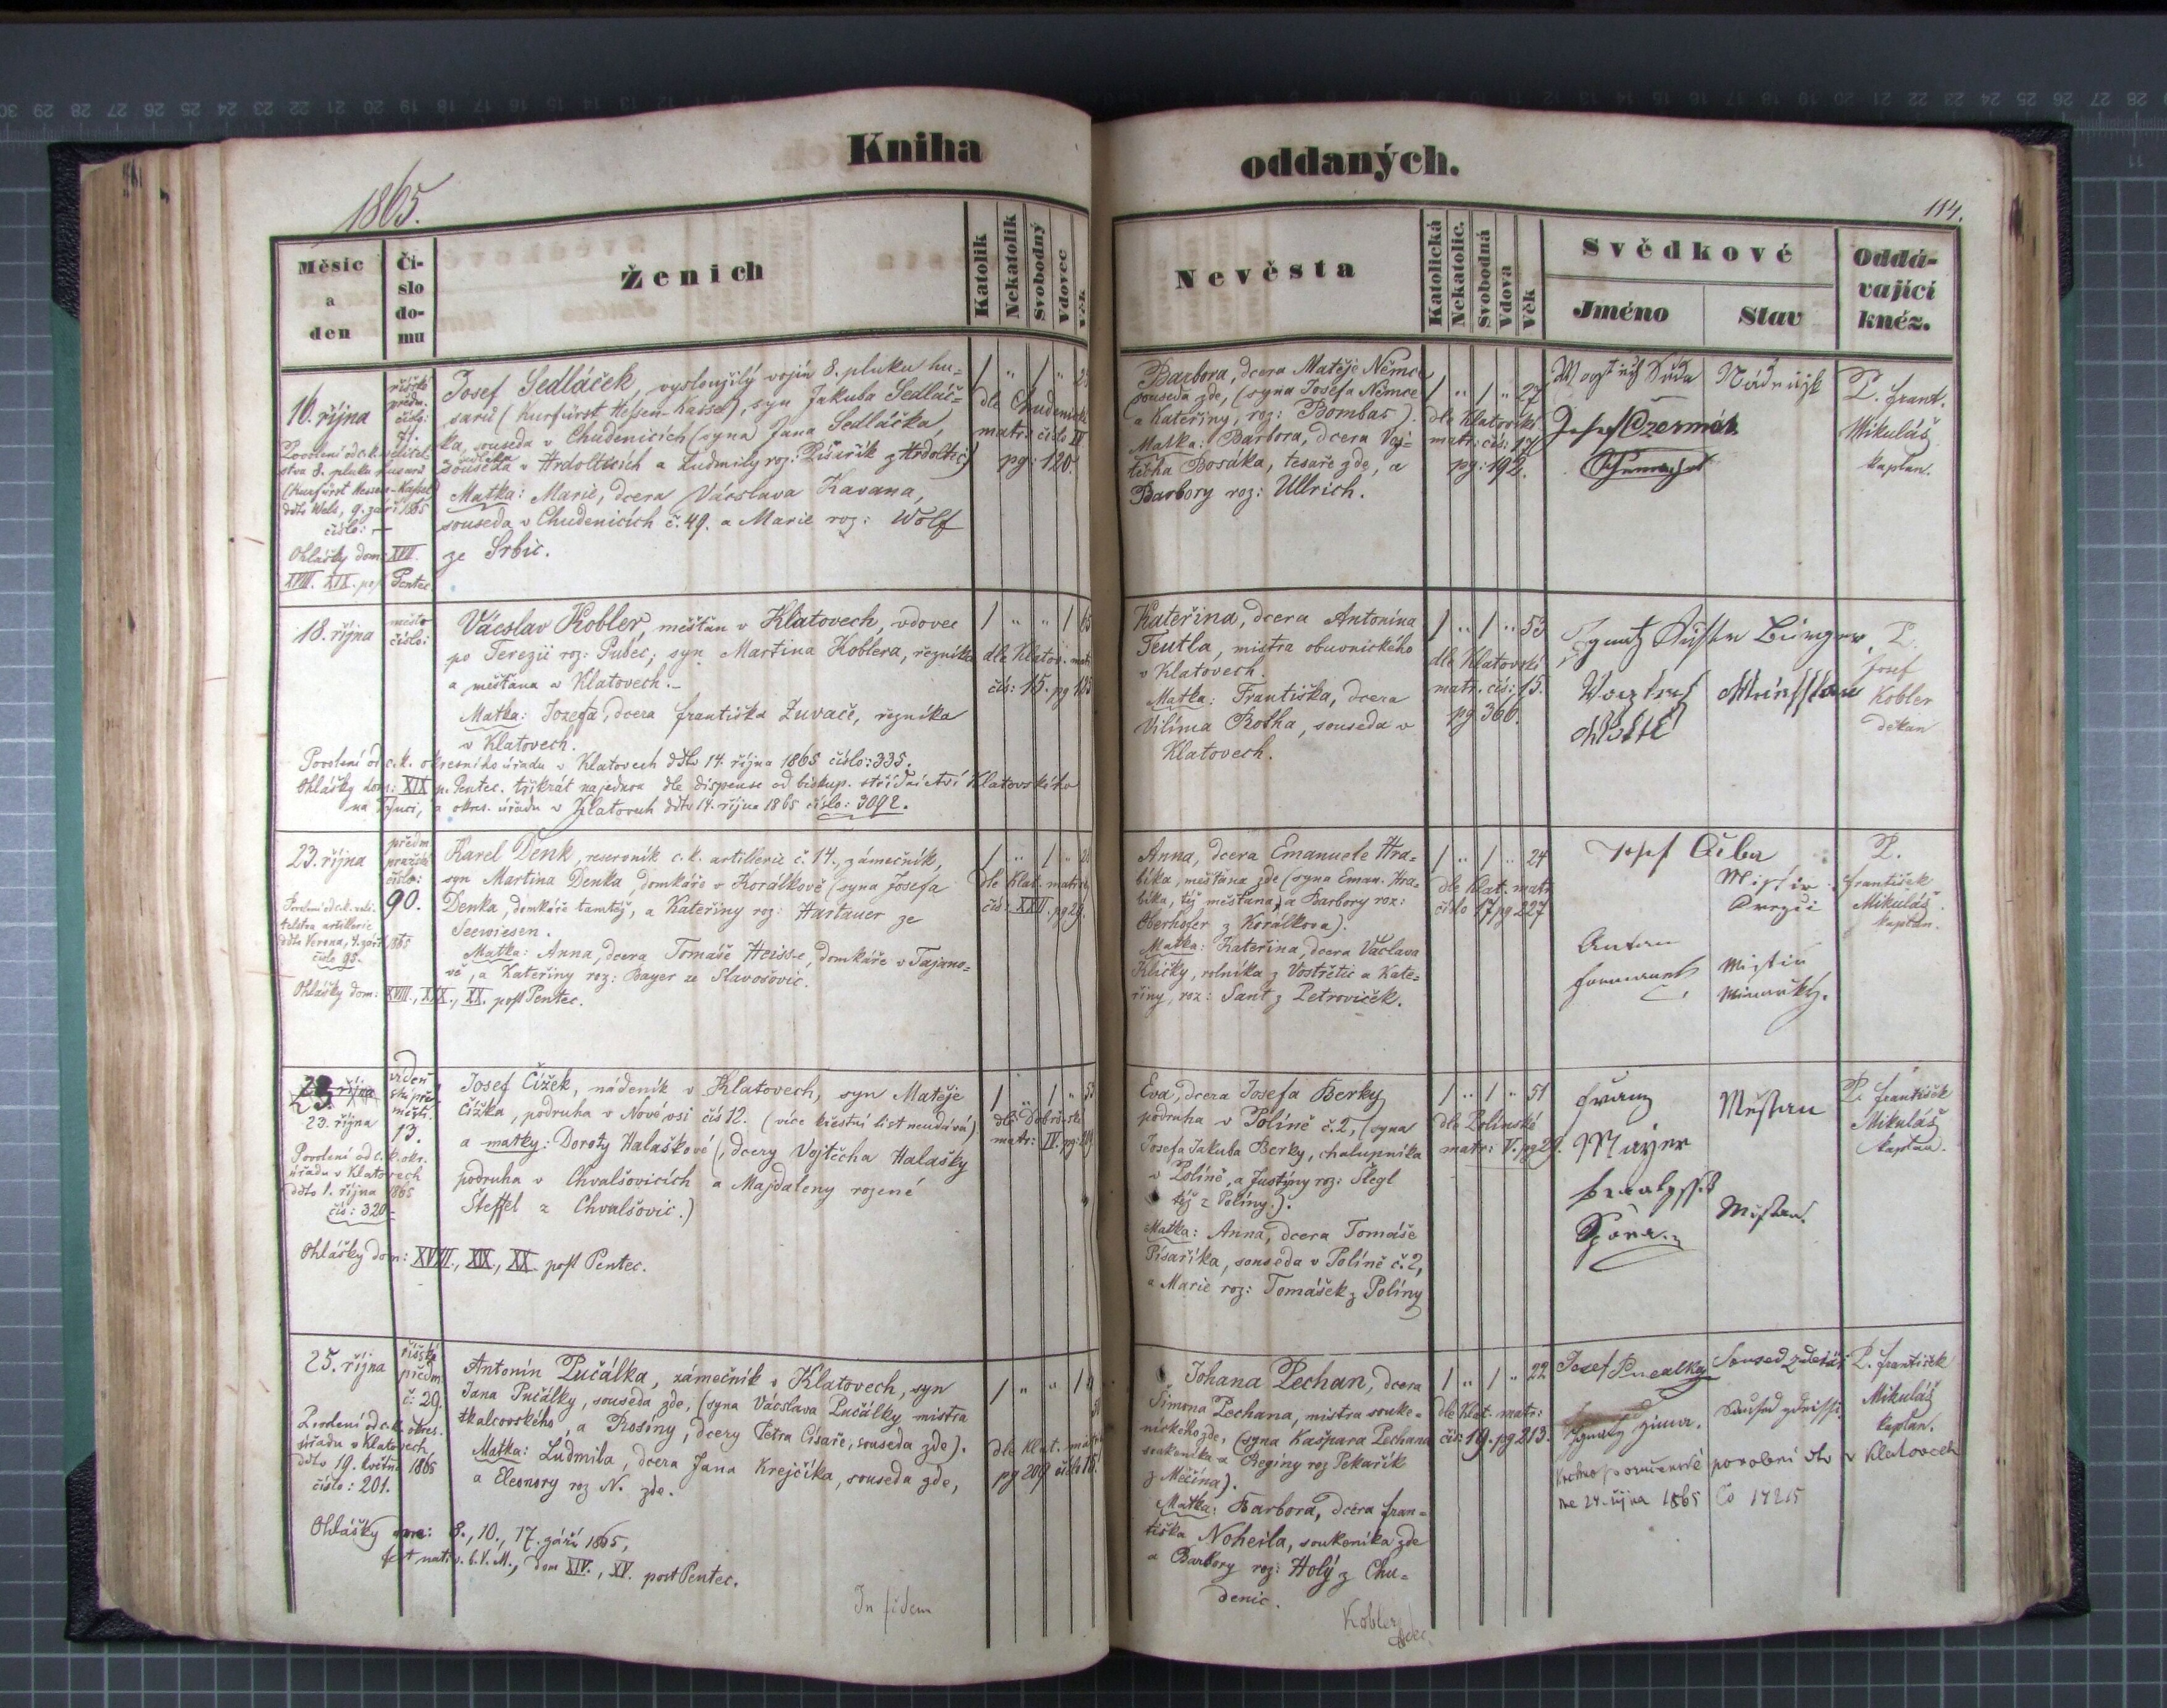 Kniha
oddaných.
1865.
114.
Měsíc
a
den
Čí-
slo
do-
mu
Ženich
Katolík
Nekatolík
Svobodný
Vdovec
Věk
Nevěsta
Katolická
Nekatolic.
Svobodná
Vdova
Věk
Svědkové
Jméno
Stav
Oddá-
vající
kněz.
16. října
říšské
předm.
číslo:
Povolení od c. k. velitel-
stva 8. pluku husarů
(Kurfürst Hessen-Kassel)
ddto Wels, 9. září 1865
číslo: —
Ohlášky dom: XVII.
XVIII. XIX. post Pentec
Josef Sedláček, vysloužilý vojín 8. pluku hu-
sarů (Kurfürst Hessen-Kassel), syn Jakuba Sedláč-
ka, souseda v Chudenicích (syna Jana Sedláčka,
souseda v Hrdolticích a Ludmily roz: z Hrdoltic)
Matka: Marie, dcera Václava Kavana,
souseda v Chudenicích č. 49. a Marie roz: Wolf
ze Srbic.
1 " 1 "
dle Chudenické
matr: číslo IV
pg: 120.
Barbora, dcera Matěje Němce
souseda zde, (syna Josefa Němce
a Kateřiny, roz: Bombas).
Matka: Barbora, dcera Voj-
těcha Bosáka, tesaře zde, a
Barbory roz: Ullrich.
1 " 1 " 27
dle Klatovské
matr: čís: 17
pg: 192.
Josef Czermak
P. Frant.
Mikuláš
kaplan.
18. října
město
číslo:
Václav Kobler, měšťan v Klatovech, vdovec
po Terezii roz: Pušec; syn Martina Koblera, řezníka
a měšťana v Klatovech.
Matka: Jozefa, dcera Františka Zuvače, řezníka
v Klatovech.
Povolení od c. k. okresního úřadu v Klatovech ddto 14. října 1865 číslo: 335.
Ohlášky dom: XIX p. Pentec. třikrát najednou dle dispense od biskup. střídnictví Klatovského
na Týnci, a okres. úřadu v Klatovech ddto 14. října 1865 číslo: 3092.
1 " " 1 65
dle Klatov. matr
čís: 15. pg
Kateřina, dcera Antonína
Teutla, mistra obuvnického
v Klatovech.
Matka: Františka, dcera
Vilíma Rotha, souseda v
Klatovech.
1 " 1 " 53
dle Klatovské
matr. čís: 15.
pg 366.
Ignatz Bürger
P.
Josef
Kobler
děkan
23. října
předm.
pražské
číslo:
90.
Povolení od c. k. veli-
telstva artillerie
ddto Verona, 4. září 1865
číslo 98.
Ohlášky dom: XVIII., XIX., XX. post Pentec.
Karel Denk, reservník c. k. artillerie č. 14., zámečník,
syn Martina Denka, domkáře v Korálkově (syna Josefa
Denka, domkáře tamtéž, a Kateřiny roz: Hartauer ze
Seewiesen.
Matka: Anna, dcera Tomáše Heisse, domkáře v Tajano-
vě, a Kateřiny roz: Bayer ze Slavošovic.
1 " 1 "
dle Klat. matr:
čís: XXII. pg 29.
Anna, dcera Emanuele Hra-
bíka, měšťana zde (syna Eman. Hra-
bíka, též měšťana, a Barbory roz:
Oberhofer z Korálkova).
Matka: Kateřina, dcera Václava
Kličky, rolníka z Vostřetic a Kate-
řiny, roz: Sant z Petroviček.
1 " 1 " 24
dle Klat. matr
číslo 17 pg 227
Josef
Anton
P.
František
Mikuláš
kaplan.
23. října
vídeň
ské před-
městí.
13.
Povolení od c. k. okr.
úřadu v Klatovech
ddto 1. října 1865
čís: 320
Ohlášky dom: XVIII., XIX., XX. post Pentec.
Josef Čížek, nádeník v Klatovech, syn Matěje
Čížka, podruha v Nové vsi čís 12. (více křestní list neudává)
a matky: Doroty Halaškové (, dcery Vojtěcha Halašky
podruha v Chvalšovicích a Majdaleny rozené
Steffel z Chvalšovic.)
1 " 1 " 53
dle Dobřanské
matr: IV. pg:
Eva, dcera Josefa Berky
podruha v Políně č. 2, (syna
Josefa Jakuba Berky, chalupníka
v Políně, a Justýny roz: Šlegl
též z Políny.).
Matka: Anna, dcera Tomáše
Písaříka, souseda v Políně č. 2,
a Marie roz: Tomášek z Políny
1 " 1 " 51
dle Polínské
matr: V. pg 29.
Franz
Mayer
Měšťan
P. František
Mikuláš
kaplan.
25. října
říšské
předm
č: 29.
Povolení od c. k. okres.
úřadu v Klatovech,
ddto 19. května 1865
číslo: 201.
Ohlášky 8., 10., 17. září 1865,
fest nativ. b. V. M., dom XIV., XV. post Pentec.
Antonín Pučálka, zámečník v Klatovech, syn
Jana Pučálky, souseda zde, (syna Václava Pučálky mistra
tkalcovského, a Rosiny, dcery Petra Císaře, souseda zde).
Matka: Ludmila, dcera Jana Krejčíka, souseda zde,
a Eleonory roz N. zde.
1 " " 1
dle Klat. matr
pg 209 číslo 18.
Johana Pechan, dcera
Šimona Pechana, mistra souke-
nického zde, (syna Kašpara Pechana
soukeníka a Reginy roz Pekařík
z Měčína).
Matka: Barbora, dcera Fran-
tiška Noheila, soukeníka zde
a Barbory roz: Holý z Chu-
denic.
1 " 1 " 22
dle Klat. matr:
čís: 19. pg 213.
Josef Pucalka
Soused zdejší
Ignatz Zimer.
P. František
Mikuláš
kaplan.
povolení dto v Klatovech
24. října 1865 Čo 17215
In fidem
Kobler